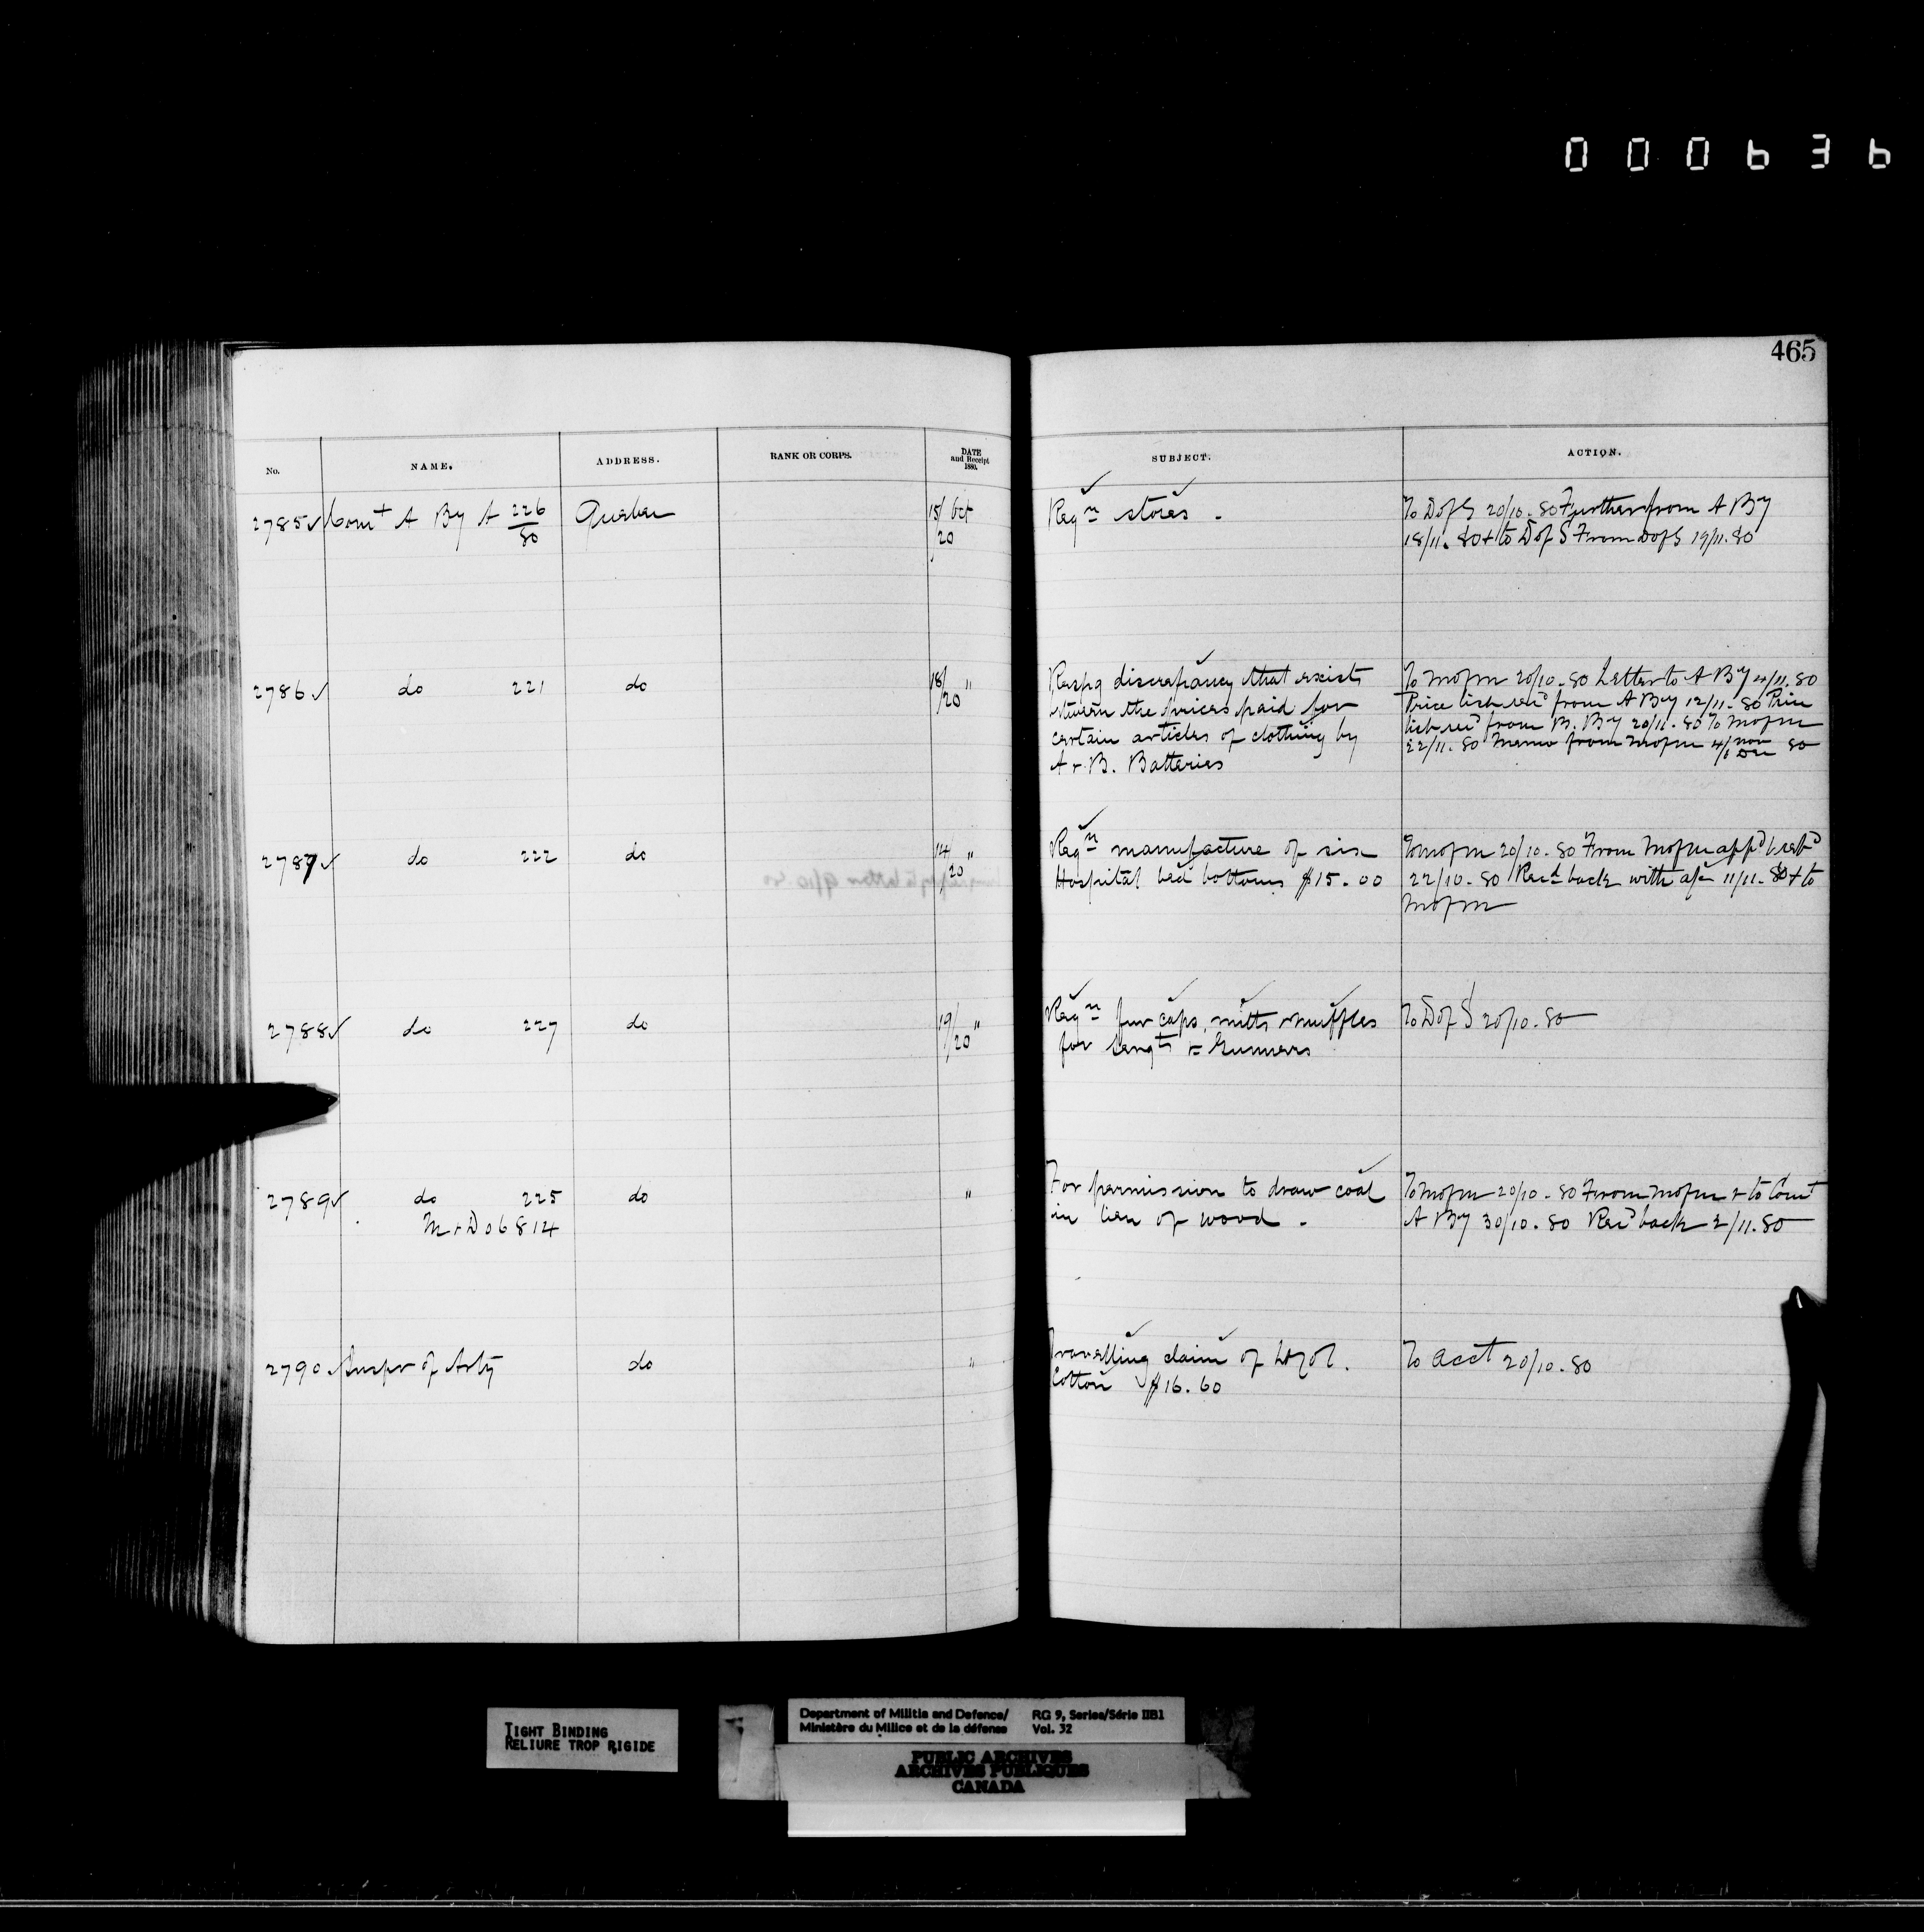 000636
465
No. NAME. ADDRESS. RANK OR CORPS. DATE and Receipt 1880. SUBJECT. ACTION.
2785 ✓ Comt A By A 226/80 Quebec 15/20 Oct Reqn stores. To D of S 20/10.80 Further from A By
18/11.80 & to D of S From D of S 19/11.80
2786 ✓ do 221 do 18/20 " Respg discrepancy that exists To M of M 20/10.80 Letter to A By 4/11.80
between the prices paid for Price list recd from A By 12/11.80 Price
certain articles of clothing by list recd from B. By 20/11.80 To M of M
A & B. Batteries 22/11.80 Memo from M of M 4/6 Nov Dec 80
2787 ✓ do 222 do 14/20 " Reqn manufacture of six To M of M 20/10.80 From M of M appd & retd
Hospital bed bottoms $15.00 22/10.80 Recd back with a/c 11/11.80 & to
M of M
2788 ✓ do 227 do 19/20 " Reqn fur caps, mitts & muffles To D of S 20/10.80
for Sergts & Gunners
2789 ✓ do 225 do " For permission to draw coal To M of M 20/10.80 From M of M & to Comt
M & D 06814 in lieu of wood. A By 30/10.80 Recd back 2/11.80
2790 ✓ Inspr of Arty do " Travelling claim of Lt Col. To Acct 20/10.80
Cotton $16.60
TIGHT BINDING
RELIURE TROP RIGIDE
Department of Militia and Defence/ RG 9, Series/Série IIB1
Ministère du Milice et de la défense Vol. 32
PUBLIC ARCHIVES
ARCHIVES PUBLIQUES
CANADA